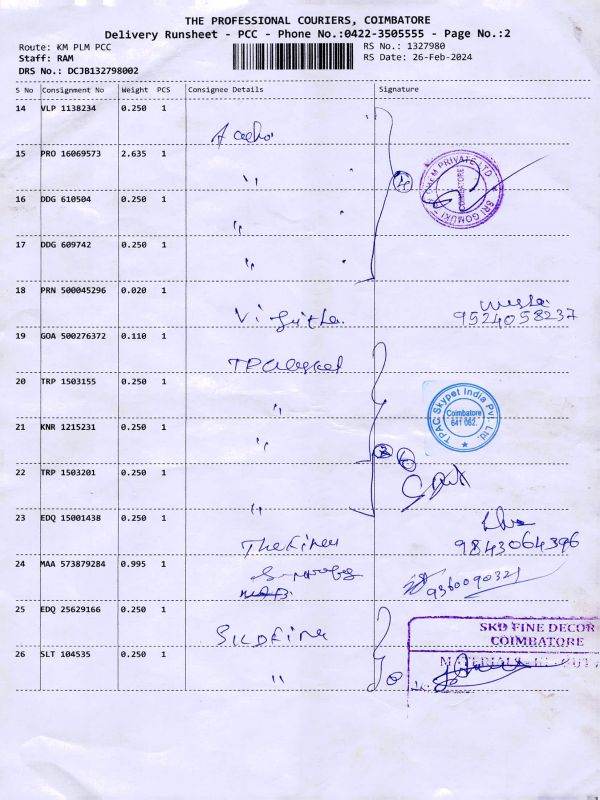 THE PROFESSIONAL COURIERS, COIMBATORE
Delivery Runsheet - PCC - Phone No.:0422-3505555 - Page No.:2
Route: KM PLM PCC
RS No.: 1327980
Staff: RAM
RS Date: 26-Feb-2024
DRS No.: DCJB132798002
S No Consignment No Weight PCS Consignee Details Signature
14 VLP 1138234 0.250 1
15 PRO 16069573 2.635 1
CHEM PRIVATE LTD
SRI GOMUKI
COIMBATORE
16 DDG 610504 0.250 1
17 DDG 609742 0.250 1
18 PRN 500045296 0.020 1
9524058237
19 GOA 500276372 0.110 1
20 TRP 1503155 0.250 1
TPAC Skypet India Pvt. Ltd.
Coimbatore
641 062.
21 KNR 1215231 0.250 1
22 TRP 1503201 0.250 1
23 EDQ 15001438 0.250 1
9843064396
24 MAA 573879284 0.995 1
9360090321
25 EDQ 25629166 0.250 1
SKD Fine
SKD FINE DECOR
COIMBATORE
26 SLT 104535 0.250 1
"